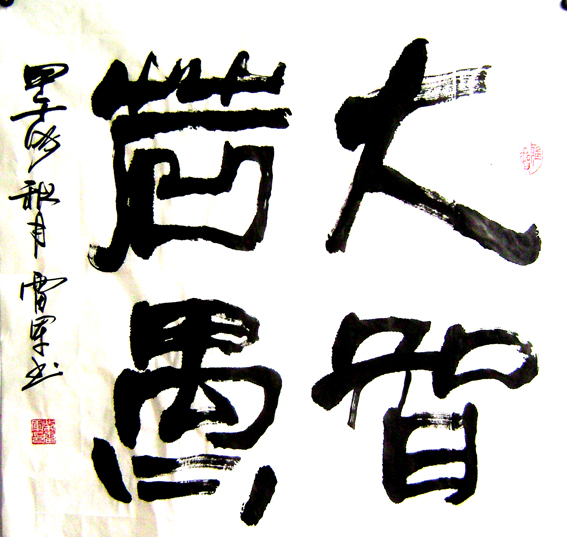 大智
若愚
甲午秋月 军书